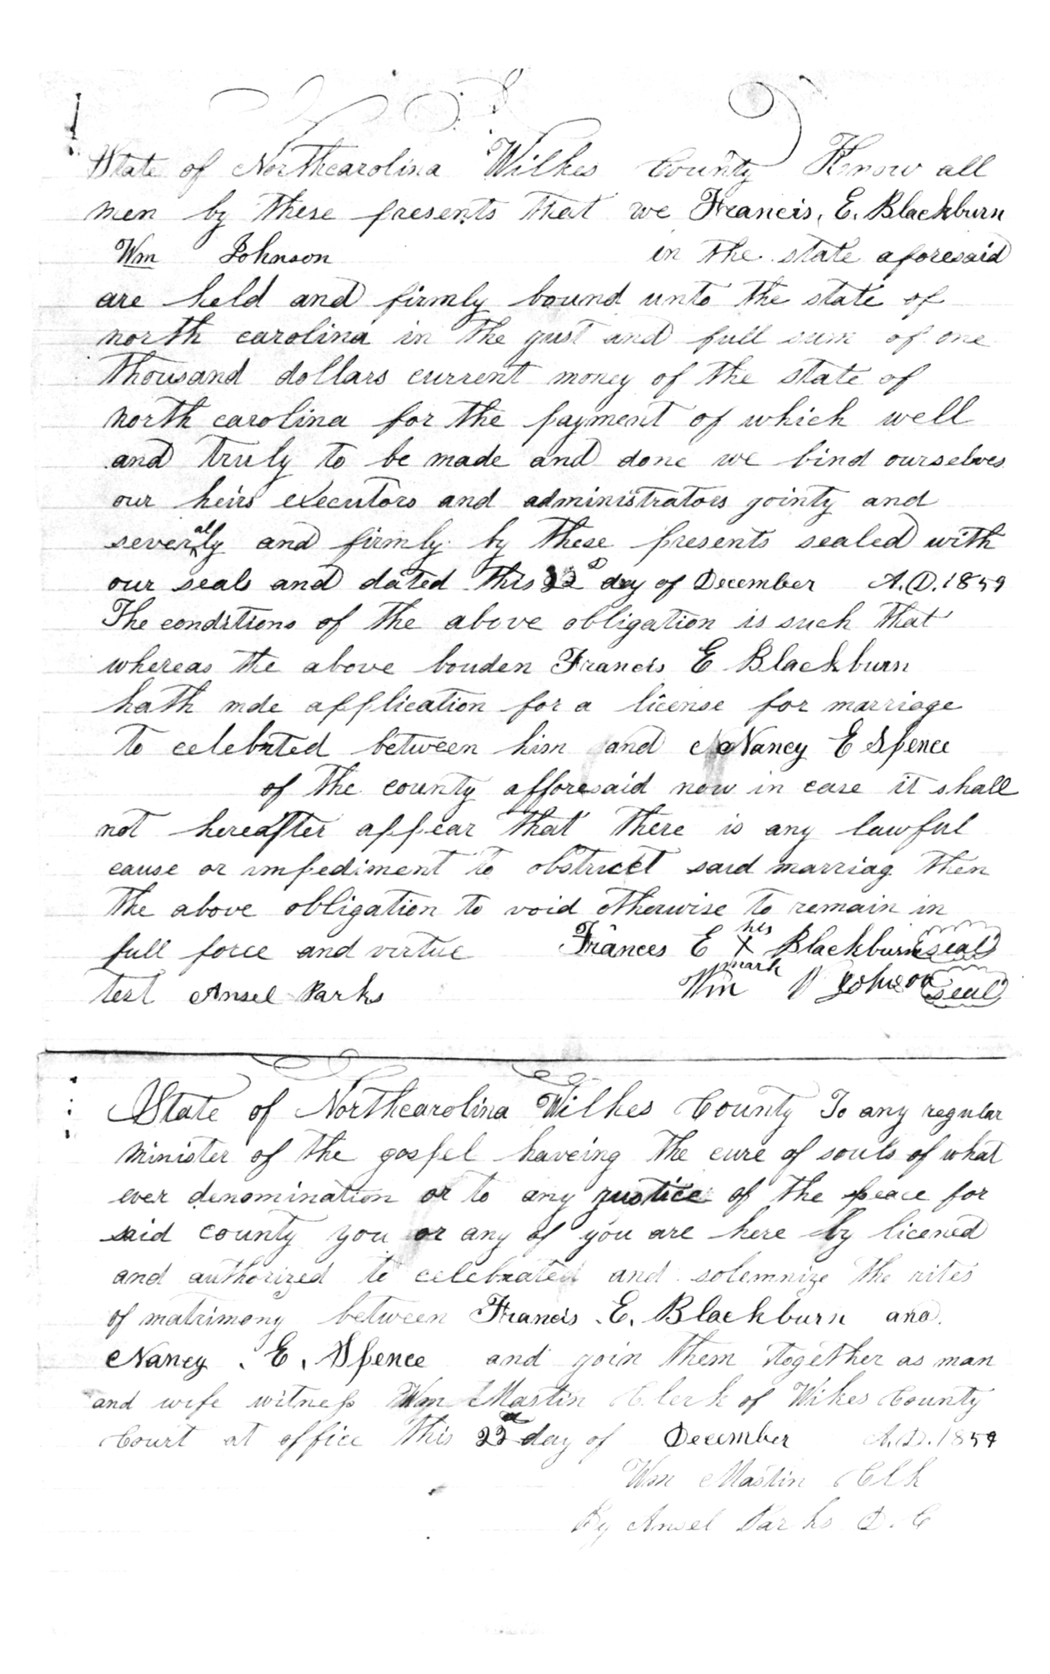 State of Northcarolina Wilkes County Know all
men by these presents that we Francis, E. Blackburn
Wm Johnson in the state aforesaid
are held and firmly bound unto the state of
north carolina in the just and full sum of one
thousand dollars current money of the state of
north carolina for the payment of which well
and truly to be made and done we bind ourselves
our heirs executors and administrators jointy and
severally and firmly by these presents sealed with
our seals and dated this 22d day of December A.D. 1859
The conditions of the above obligation is such that
whereas the above bouden Francis E Blackburn
hath mde application for a license for marriage
to celebrted between him and Nancy E Spence
of the county afforesaid now in case it shall
not hereafter appear that there is any lawful
cause or impediment to obstrict said marriag then
the above obligation to void otherwise to remain in
full force and virtue Frances E his X mark Blackburn seal
test Ansel Parks Wm Johnson seal
State of Northcarolina Wilkes County To any regular
minister of the gospel haveing the cure of souls of what
ever denomination or to any justice of the peace for
said county you or any of you are here by licened
and authorized to celebrated and solemnize the rites
of matrimony between Francis .E. Blackburn and
Nancy . E . Spence and join them together as man
and wife witness Wm Mastin Clerk of Wikes County
Court at office this 22d day of December A.D. 1859
Wm Mastin Clk
By Ansel Parks D.C